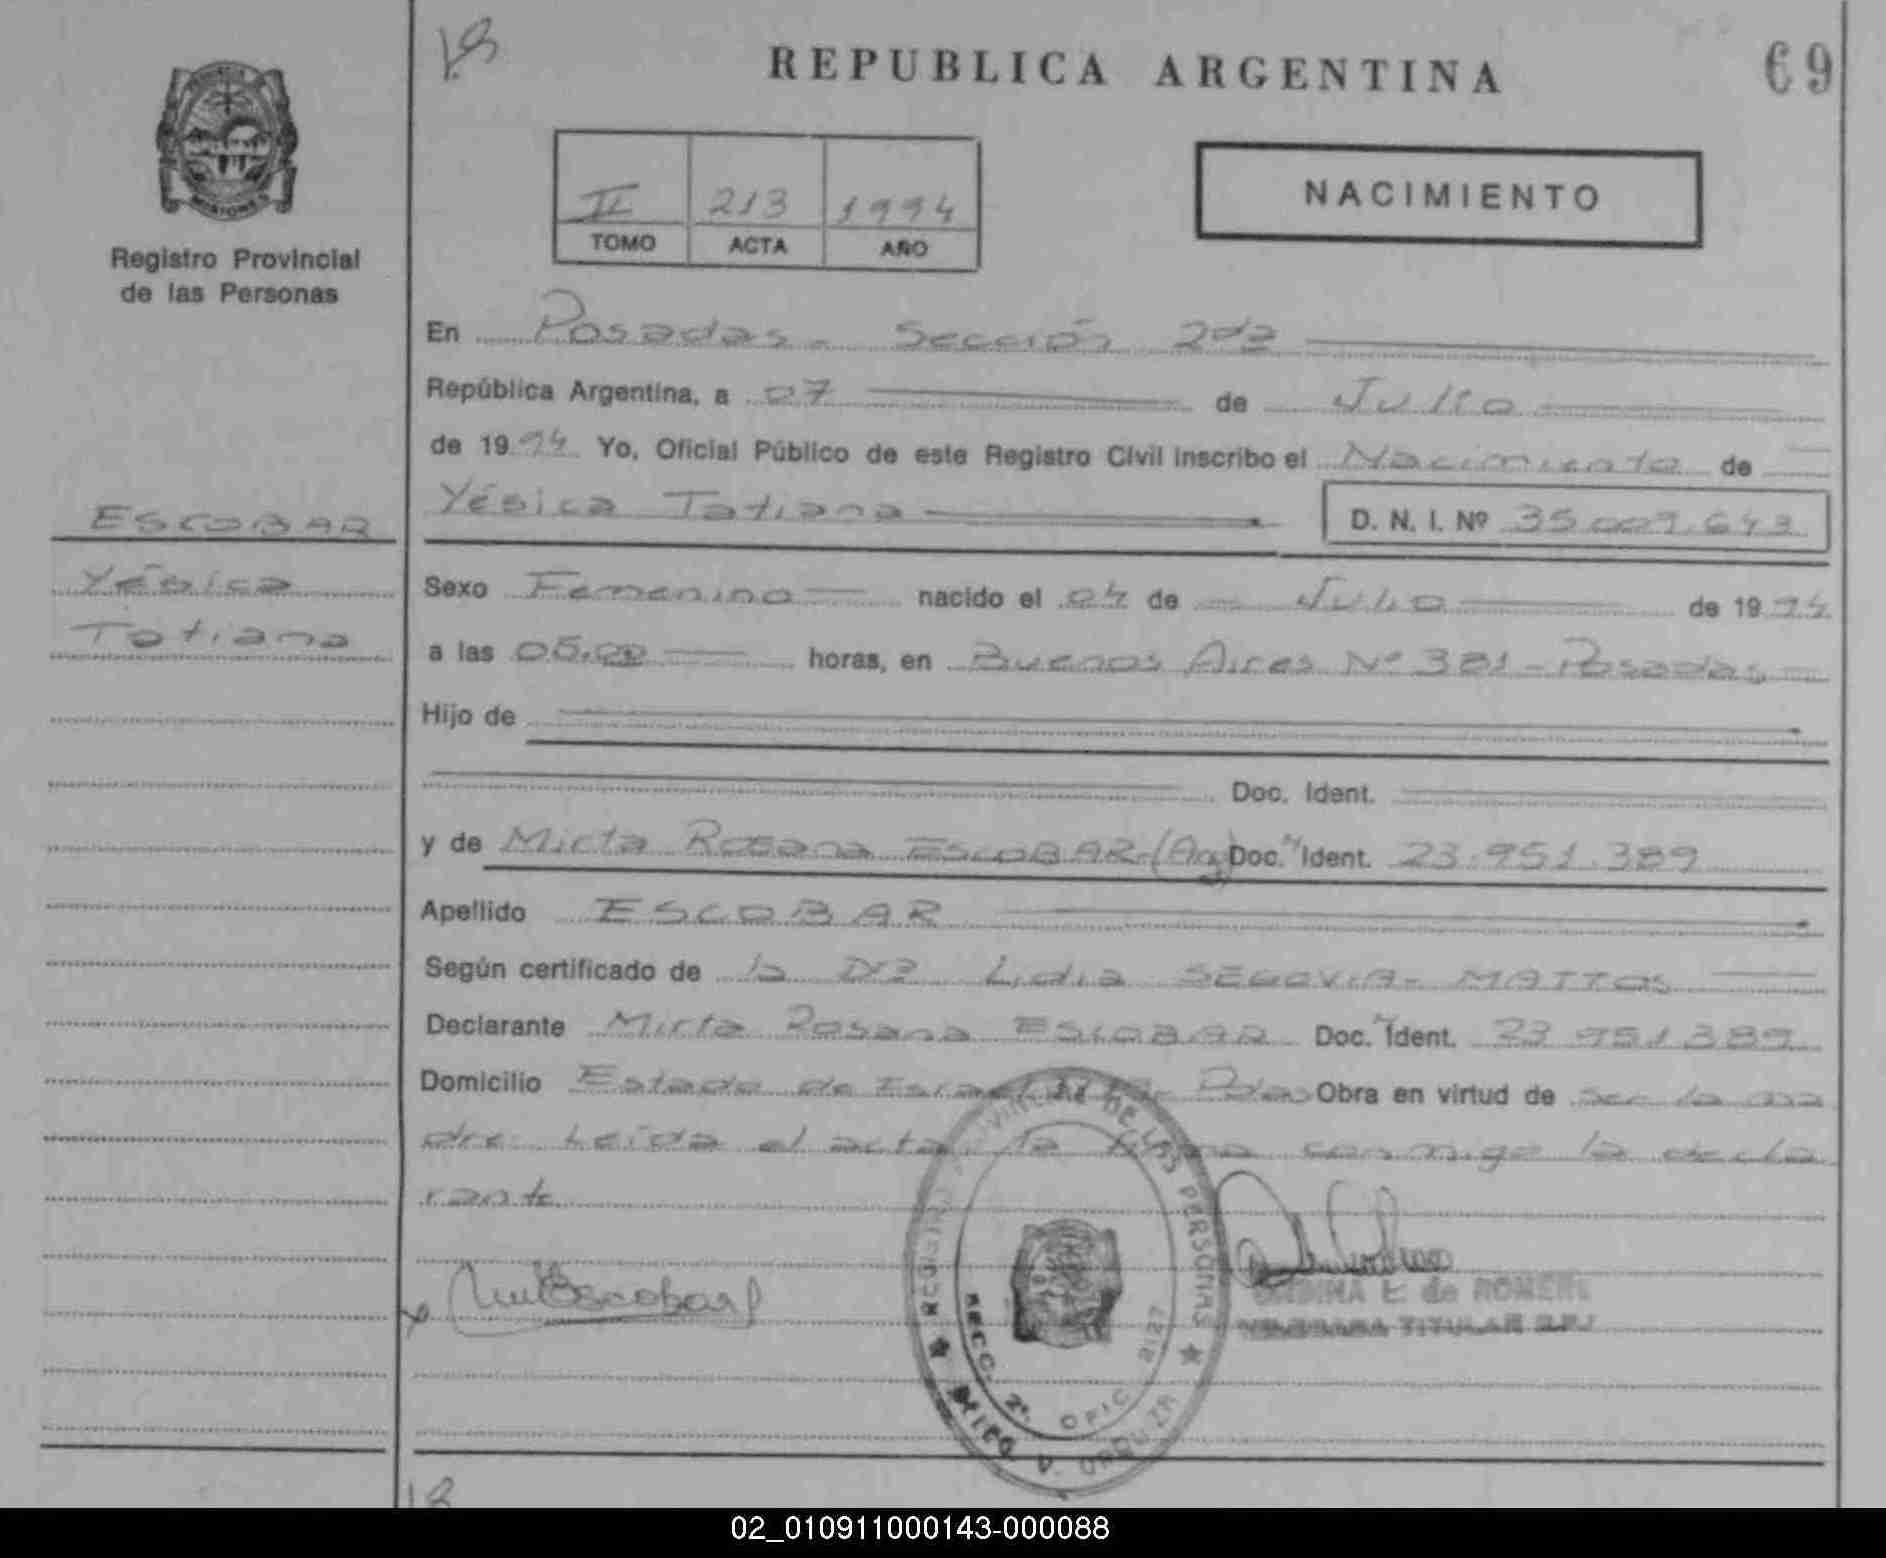 REPUBLICA ARGENTINA
69
MISIONES
Registro Provincial
de las Personas
II 213 1994
TOMO ACTA AÑO
NACIMIENTO
En Posadas - Sección 2da
República Argentina, a 07 de Julio
de 1994 Yo, Oficial Público de este Registro Civil inscribo el Nacimiento de
Yésica Tatiana D. N. I. Nº 35.009.643
ESCOBAR
Yésica
Tatiana
Sexo Femenino nacido el 04 de Julio de 1994
a las 05,00 horas, en Buenos Aires Nº 381 - Posadas
Hijo de
Doc. Ident.
y de Mirta Rosana ESCOBAR-(Arg) Doc. Ident. 23.951.389
Apellido ESCOBAR
Según certificado de la Dra Lidia SEGOVIA - MATTOS
Declarante Mirta Rosana ESCOBAR Doc. Ident. 23.951.389
Domicilio Estado de Israel Pdas Obra en virtud de ser la ma
dre. Leída el acta, la firma conmigo la decla
rante
Escobar
REGISTRO PROVINCIAL DE LAS PERSONAS
SECC. 2ª OFIC 2127
URQUIZA
E. de ROMERO
TITULAR
02_010911000143-000088